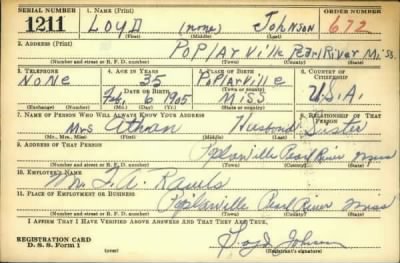 SERIAL NUMBER 1. NAME (Print) ORDER NUMBER
1211 Loyd (none) Johnson 672
(First) (Middle) (Last)
2. ADDRESS (Print)
Poplarville Pearl River Miss
(Number and street or R. F. D. number) (Town) (County) (State)
3. TELEPHONE 4. AGE IN YEARS 5. PLACE OF BIRTH 6. COUNTRY OF CITIZENSHIP
None 35 Poplarville
DATE OF BIRTH (Town or county)
Feb. 6 1905 Miss U.S.A.
(Exchange) (Number) (Mo.) (Day) (Yr.) (State or country)
7. NAME OF PERSON WHO WILL ALWAYS KNOW YOUR ADDRESS 8. RELATIONSHIP OF THAT PERSON
Mrs Sister
(Mr., Mrs., Miss) (First) (Middle) (Last)
9. ADDRESS OF THAT PERSON
Poplarville Pearl River Miss
(Number and street or R. F. D. number) (Town) (County) (State)
10. EMPLOYER'S NAME
11. PLACE OF EMPLOYMENT OR BUSINESS
Poplarville Pearl River Miss
(Number and street or R. F. D. number) (Town) (County) (State)
I AFFIRM THAT I HAVE VERIFIED ABOVE ANSWERS AND THAT THEY ARE TRUE.
REGISTRATION CARD
D. S. S. Form 1 Loyd Johnson
(Registrant's signature)